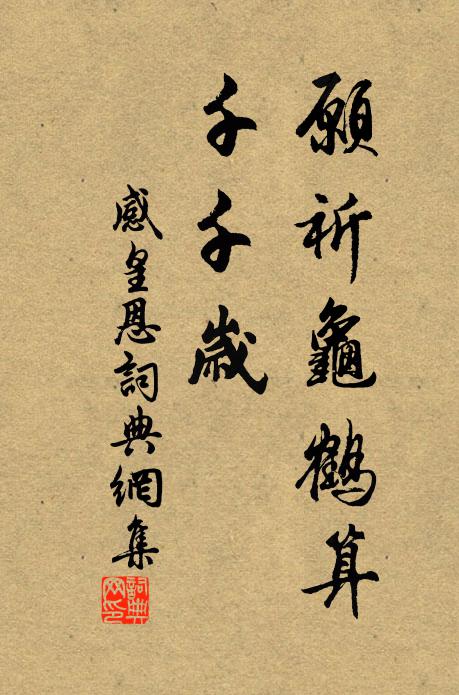 願祈龜鶴算
千千歲
感皇恩詞典網集
詞典
网印